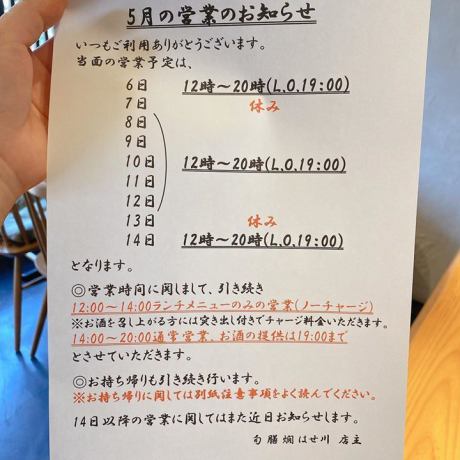 5月の営業のお知らせ
いつもご利用ありがとうございます。
当面の営業予定は、
6日 12時～20時(L.O.19:00)
7日 休み
8日
9日
10日 12時～20時(L.O.19:00)
11日
12日
13日 休み
14日 12時～20時(L.O.19:00)
となります。
◎営業時間に関しまして、引き続き
12:00～14:00ランチメニューのみの営業(ノーチャージ)
※お酒を召し上がる方には突き出し付きでチャージ料金いただきます。
14:00～20:00通常営業、お酒の提供は19:00まで
とさせていただきます。
◎お持ち帰りも引き続き行います。
※お持ち帰りに関しては別紙注意事項をよく読んでください。
14日以降の営業に関してはまた近日お知らせします。
旬膳燗 はせ川 店主